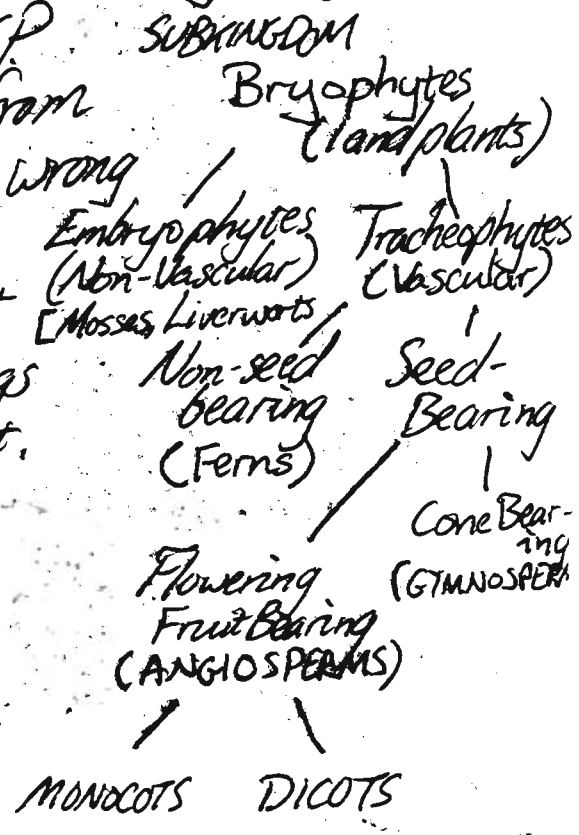 SUBKINGDOM
Bryophytes
(land plants)
wrong
Embryophytes
(Non-Vascular)
[Mosses, Liverworts
Tracheophytes
(Vascular)
Non-seed
bearing
(Ferns)
Seed-
Bearing
Cone Bear-
ing
(GYMNOSPERM
Flowering
Fruit Bearing
(ANGIOSPERMS)
MONOCOTS DICOTS